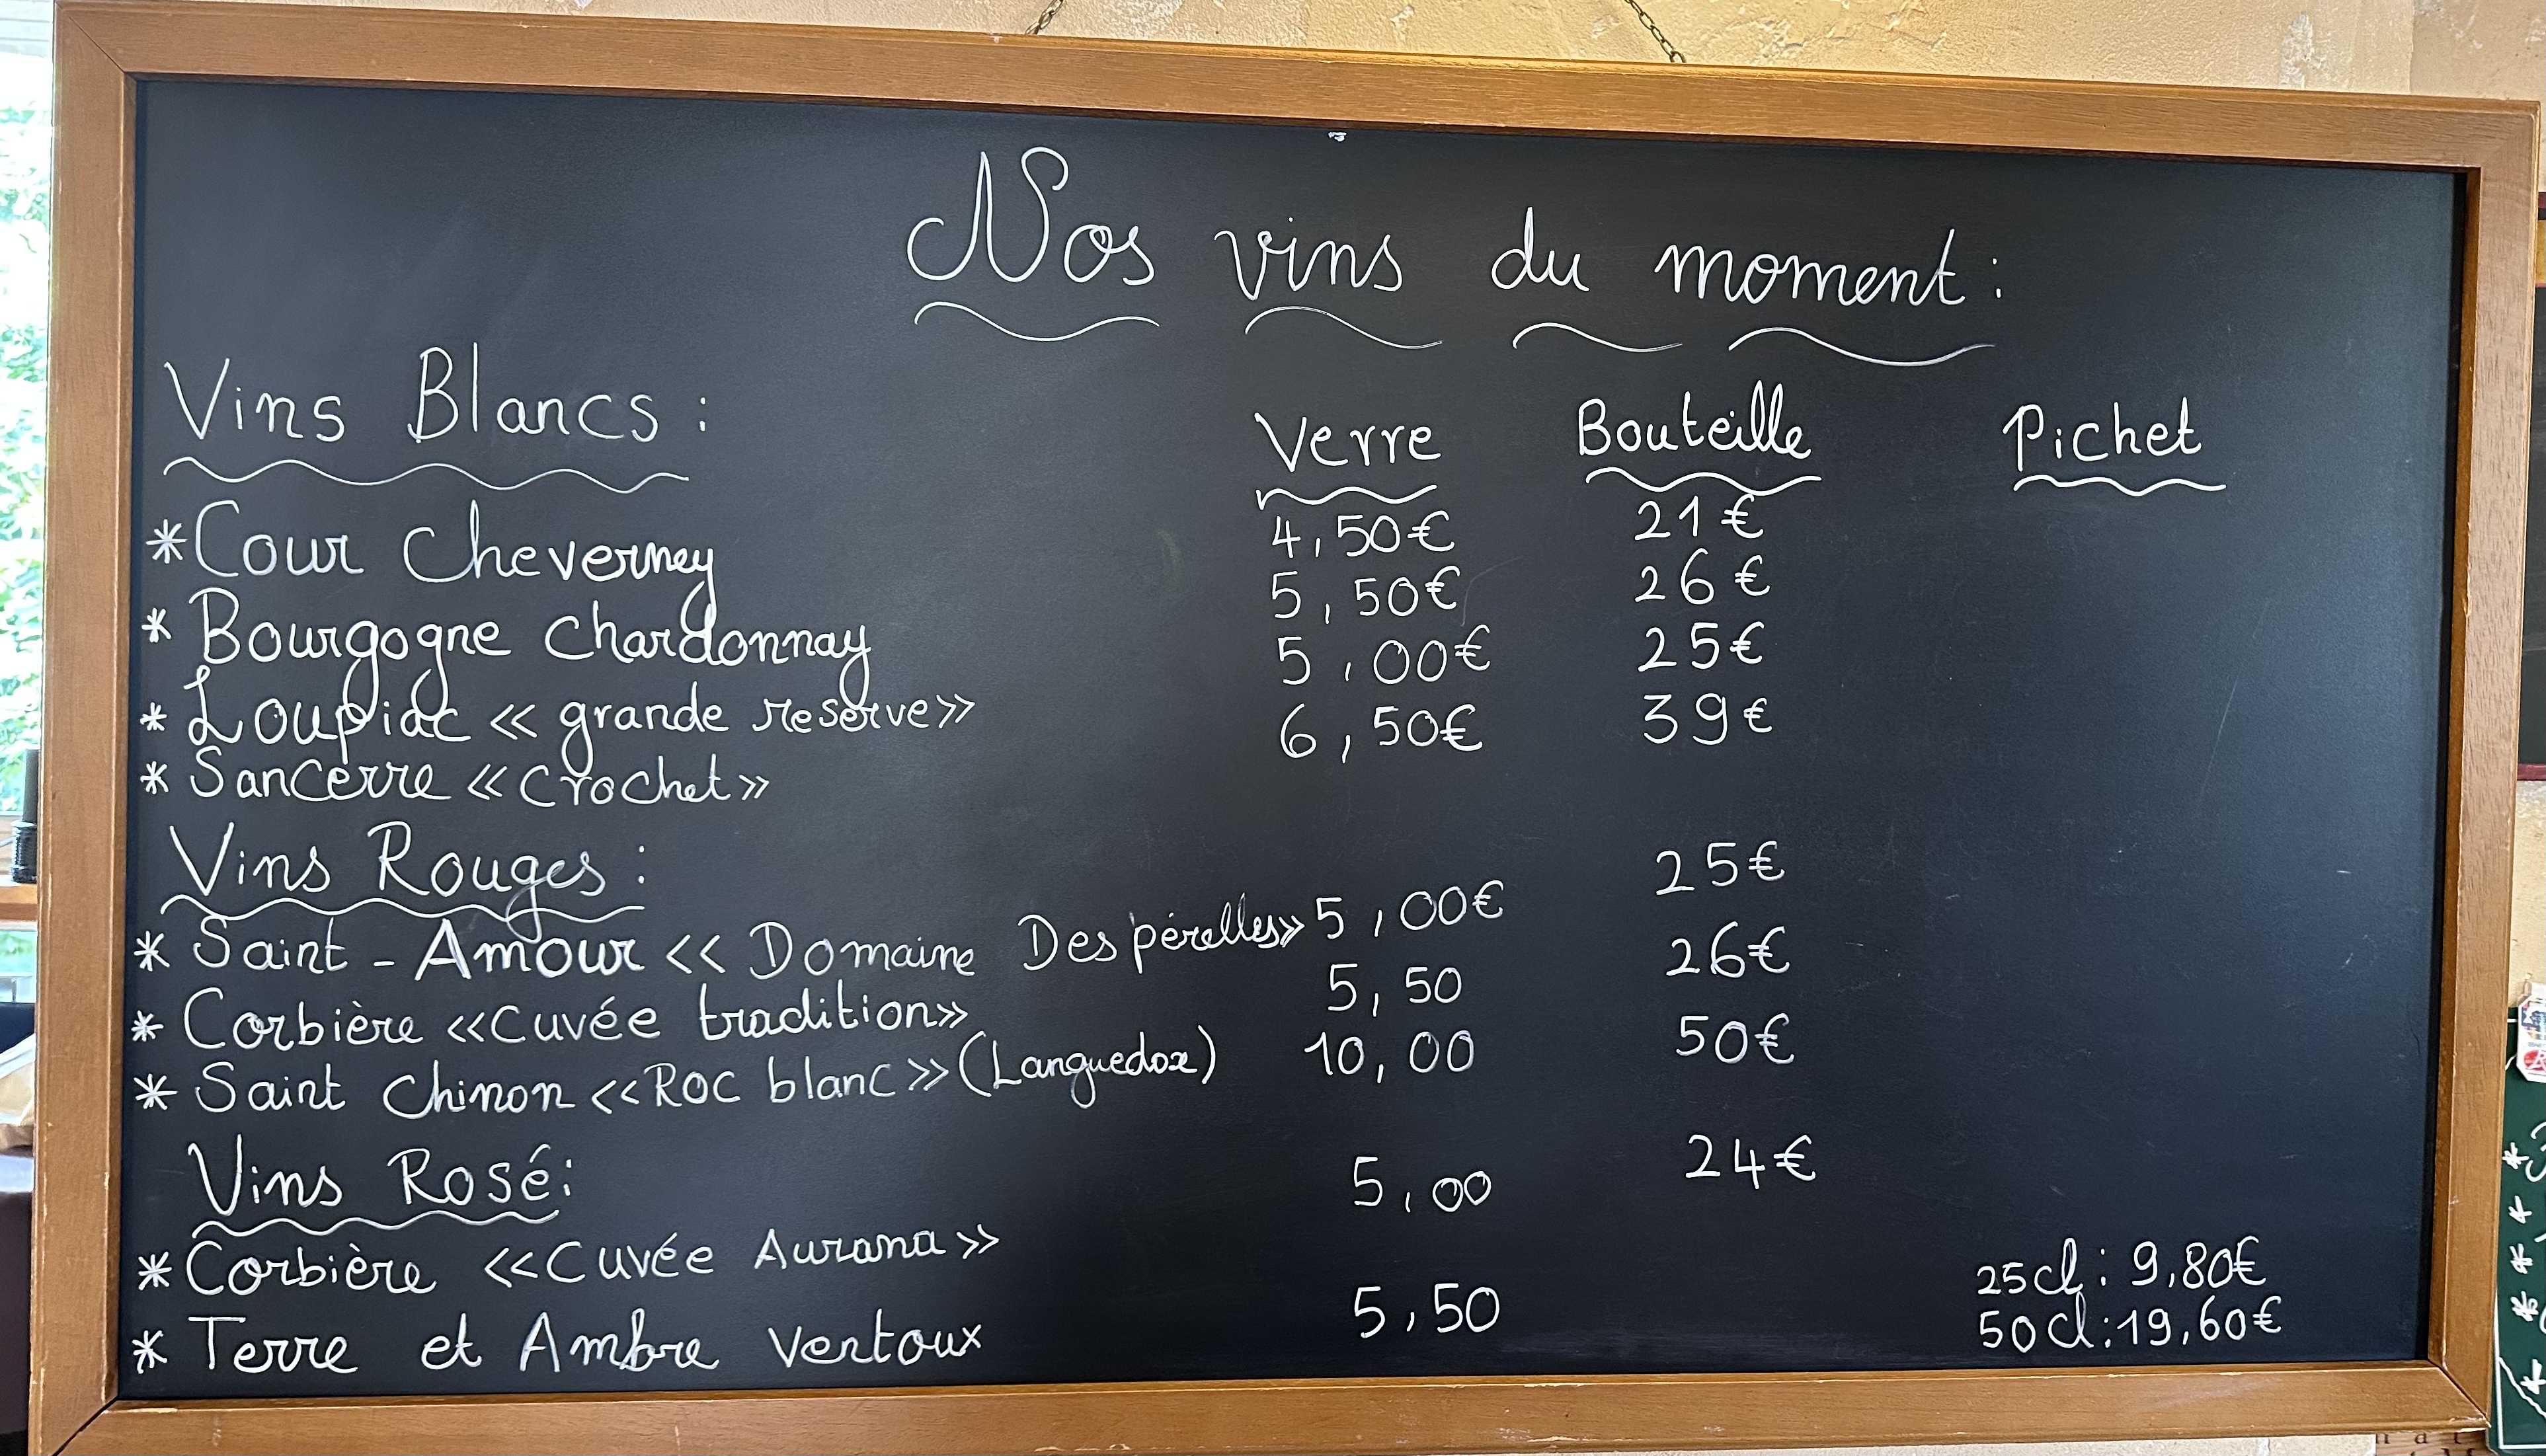 Nos vins du moment :
Vins Blancs : Verre Bouteille Pichet
* Cour Cheverney 4,50€ 21€
* Bourgogne Chardonnay 5,50€ 26€
* Loupiac << grande reserve >> 5,00€ 25€
* Sancerre << Crochet >> 6,50€ 39€
Vins Rouges :
* Saint - Amour << Domaine Des pérelles >> 5,00€ 25€
* Corbière << Cuvée tradition >> 5,50 26€
* Saint Chinon << Roc blanc >> (Languedox) 10,00 50€
Vins Rosé :
* Corbière << Cuvée Aurana >> 5,00 24€
* Terre et Ambre Ventoux 5,50 25cl : 9,80€
50cl : 19,60€